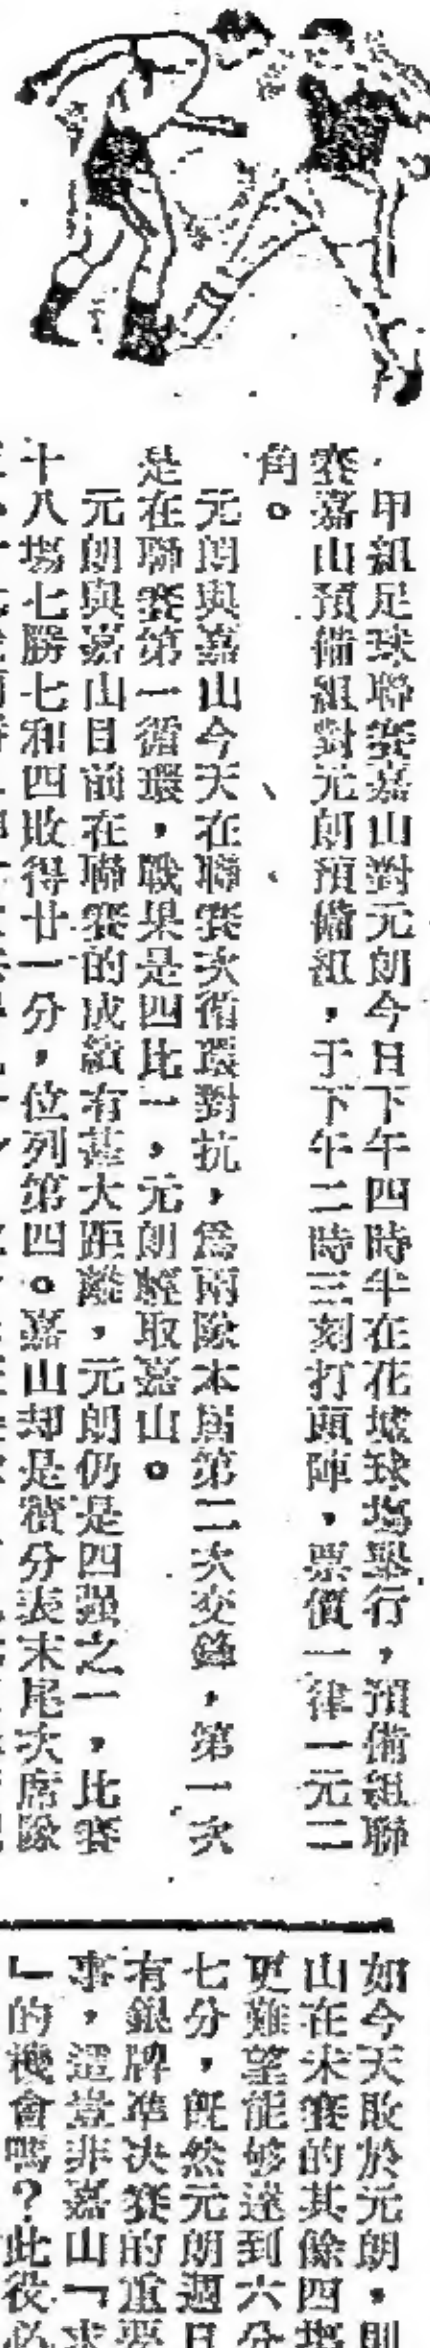 甲組足球聯賽嘉山對元朗今日下午四時半在花墟球塲舉行，預備組聯
賽嘉山預備組對元朗預備組，于下午二時三刻打頭陣，票價一律一元二
角。
元朗與嘉山今天在聯賽次循環對抗，爲兩隊本屆第二次交鋒，第一次
是在聯賽第一循環，戰果是四比一，元朗輕取嘉山。
元朗與嘉山目前在聯賽的成績有甚大距離，元朗仍是四强之一，比賽
十八塲七勝七和四敗得廿一分，位列第四。嘉山却是積分表末尾次席隊
如今天敗於元朗，則
山在未賽的其餘四塲
更難望能够達到六分
七分，旣然元朗週日
有銀牌準决賽的重
事，這豈非嘉山「求
」的機會嗎？此役必